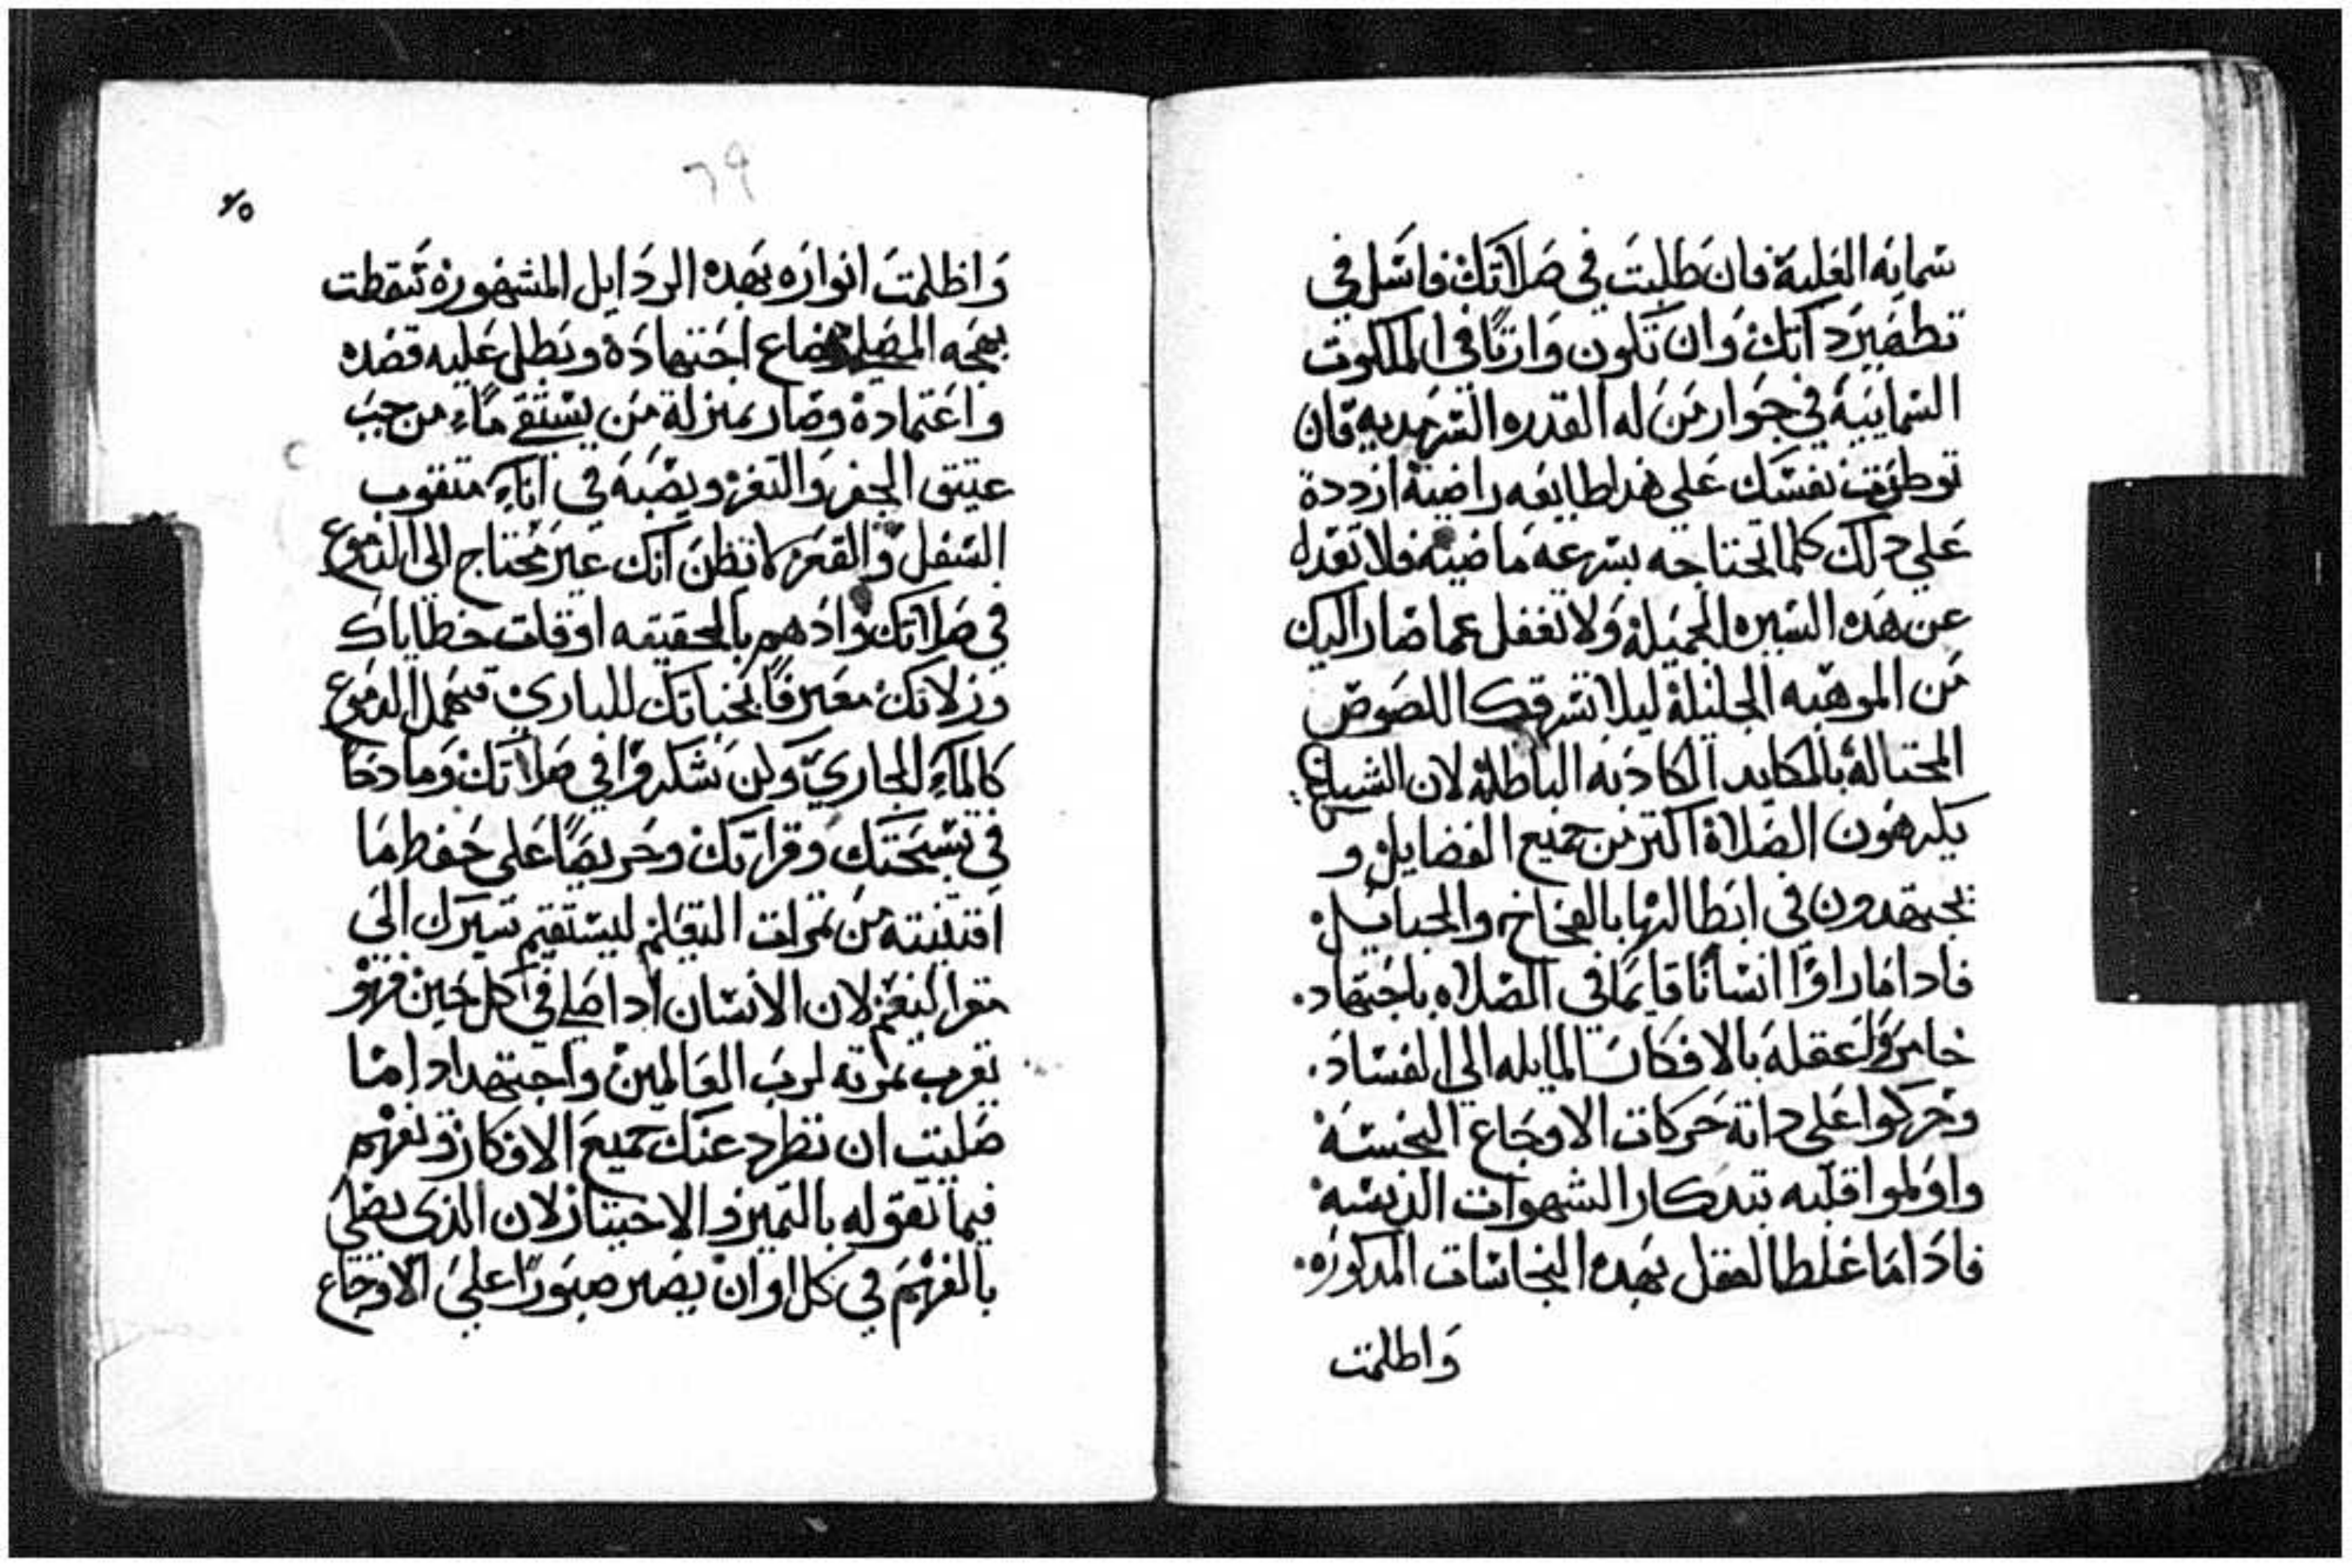 سمايه العلية فان طلبت في صلاتك فاسل في
تطهير داتك وان تكون وارتا في الملكوت
السمايية في جوار من له القدره السرمديه فان
نفسك علي هدا راضية ازددة
علي دلك كلما تحتاجه بسرعه ماضية فلا تعدل
عن هده السيره الجميلة ولا تغفل عما صار اليك
من الموهبه الجليلة ليلا تسرقك اللصوص
المحتالة بالمكايد الكادبه الباطلة لان الشياطين
يكرهون الصلاة اكتر من جميع الفضايل و
يجتهدون في ابطالها بالفخاخ والحبايل
فادا ما راوا انسانا قايما في الصلاه باجتهاد.
خامروا عقله بالافكار المايله الي الفساد.
وحركوا علي داته حركات الاوجاع النجسة
واولموا قلبه بتدكار الشهوات الدنسة
فادا ما غلط العقل بهده النجاسات المدكوره.
واظلمت
٦٩
٧٥
واظلمت انواره بهده الردايل المشهورة سقطت
بهجه المصلي وضاع اجتهادة وبطل عليه قصده
واعتمادة وصار بمنزلة من يستقي ماء من جب
عتيق الحفر والتغر ويصبه في اناء متقوب
السفل والقعر لا تظن انك غير محتاج الي الدموع
في صلاتك وادهم بالحقيقه اوقات خطاياك
وزلاتك معترفا بجناتك للباري فتهمل الدموع
كالماء الجاري وكن في صلاتك وما دخا
في تسبحتك وقراتك وحريصا علي حفظ ما
اقتنيته من تمرات التعليم ليستقيم سيرك الي
مقر النعيم لان الانسان ادا صلي في كل حين فهو
يقرب تمرته لرب العالمين واجتهد ادا ما
صليت ان تطرد عنك جميع الافكار وتفهم
فيما تقوله بالتميز والاختيار لان الذي يصلي
بالفهم في كل اوان يصير صبورا علي الاوجاع